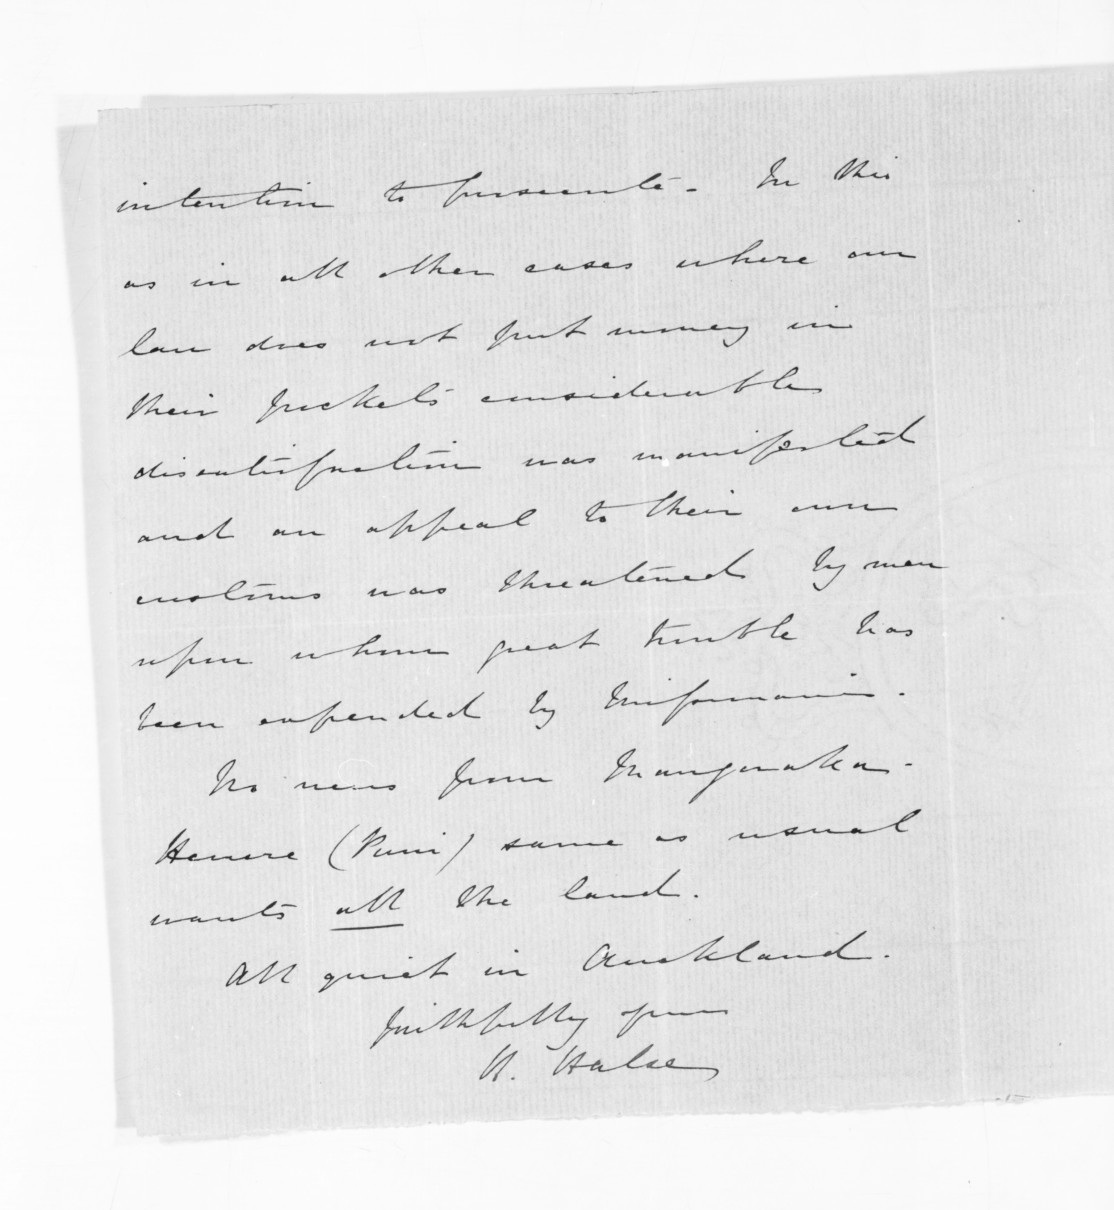 intention to prosecute. In this
as in all other cases where our
law does not put money in
their pockets considerable
dissatisfaction was manifested
and an appeal to their own
customs was threatened by men
upon whom great trouble has
been expended by
No news from
Henere (Puni) same as usual
wants all the land.
All quiet in Auckland.
Faithfully yours
H. Halse